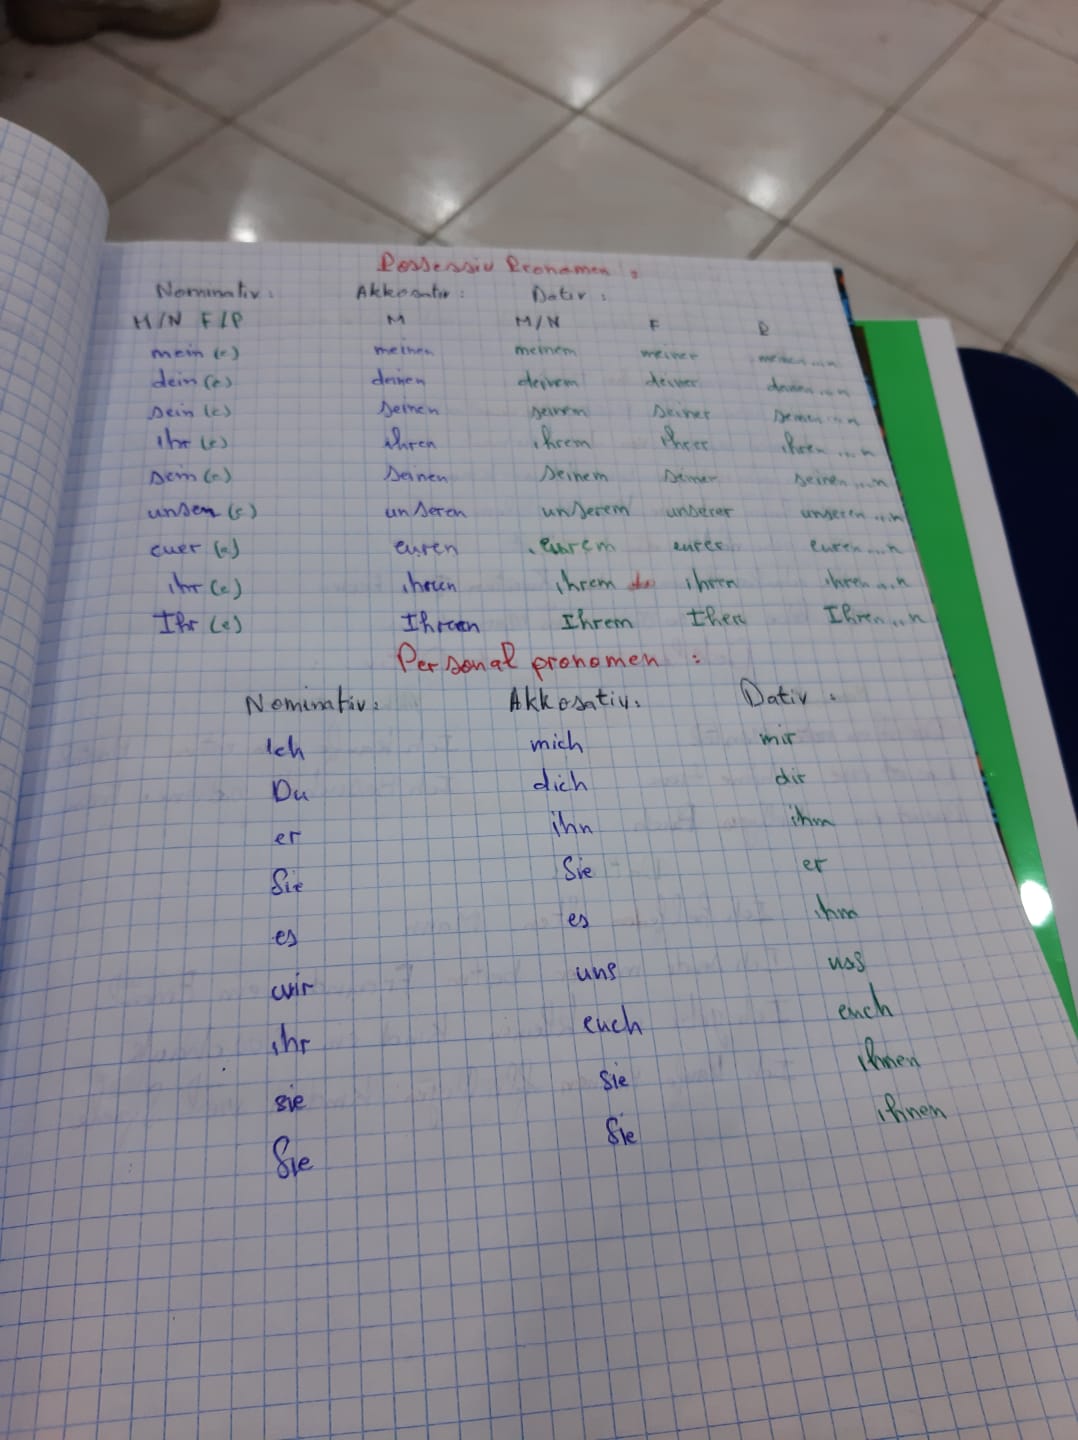 Possessiv Pronomen :
Nominativ : Akkosativ : Dativ :
M/N F/P M M/N F P
mein (e) meinen meinem meiner meinen...n
dein (e) deinen deinem deiner deinen...n
sein (e) seinen seinem seiner seinen...n
ihr (e) ihren ihrem ihrer ihren...n
sein (e) seinen seinem seiner seinen...n
unser (e) unseren unserem unserer unseren...n
euer (e) euren eurem eurer euren...n
ihr (e) ihren ihrem ihren...n
Ihr (e) Ihren Ihrem Iher Ihren...n
Personal pronomen :
Nominativ : Akkosativ : Dativ :
Ich mich mir
Du dich dir
er ihn ihm
Sie Sie er
es es ihm
wir uns uss
ihr euch euch
sie sie ihnen
Sie Sie ihnen